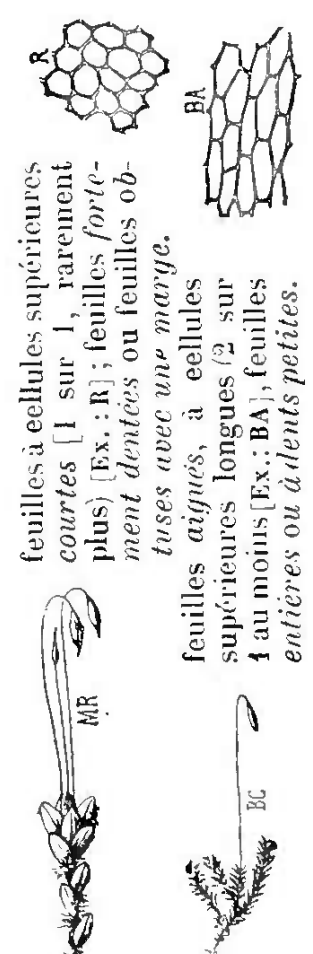 feuilles à cellules supérieures
courtes [1 sur 1, rarement
plus) [Ex. : R] ; feuilles forte-
ment dentées ou feuilles ob-
tuses avec une marge.
R
MR
feuilles aiguës, à cellules
supérieures longues (2 sur
1 au moins [Ex.: BA], feuilles
entières ou à dents petites.
BA
BC